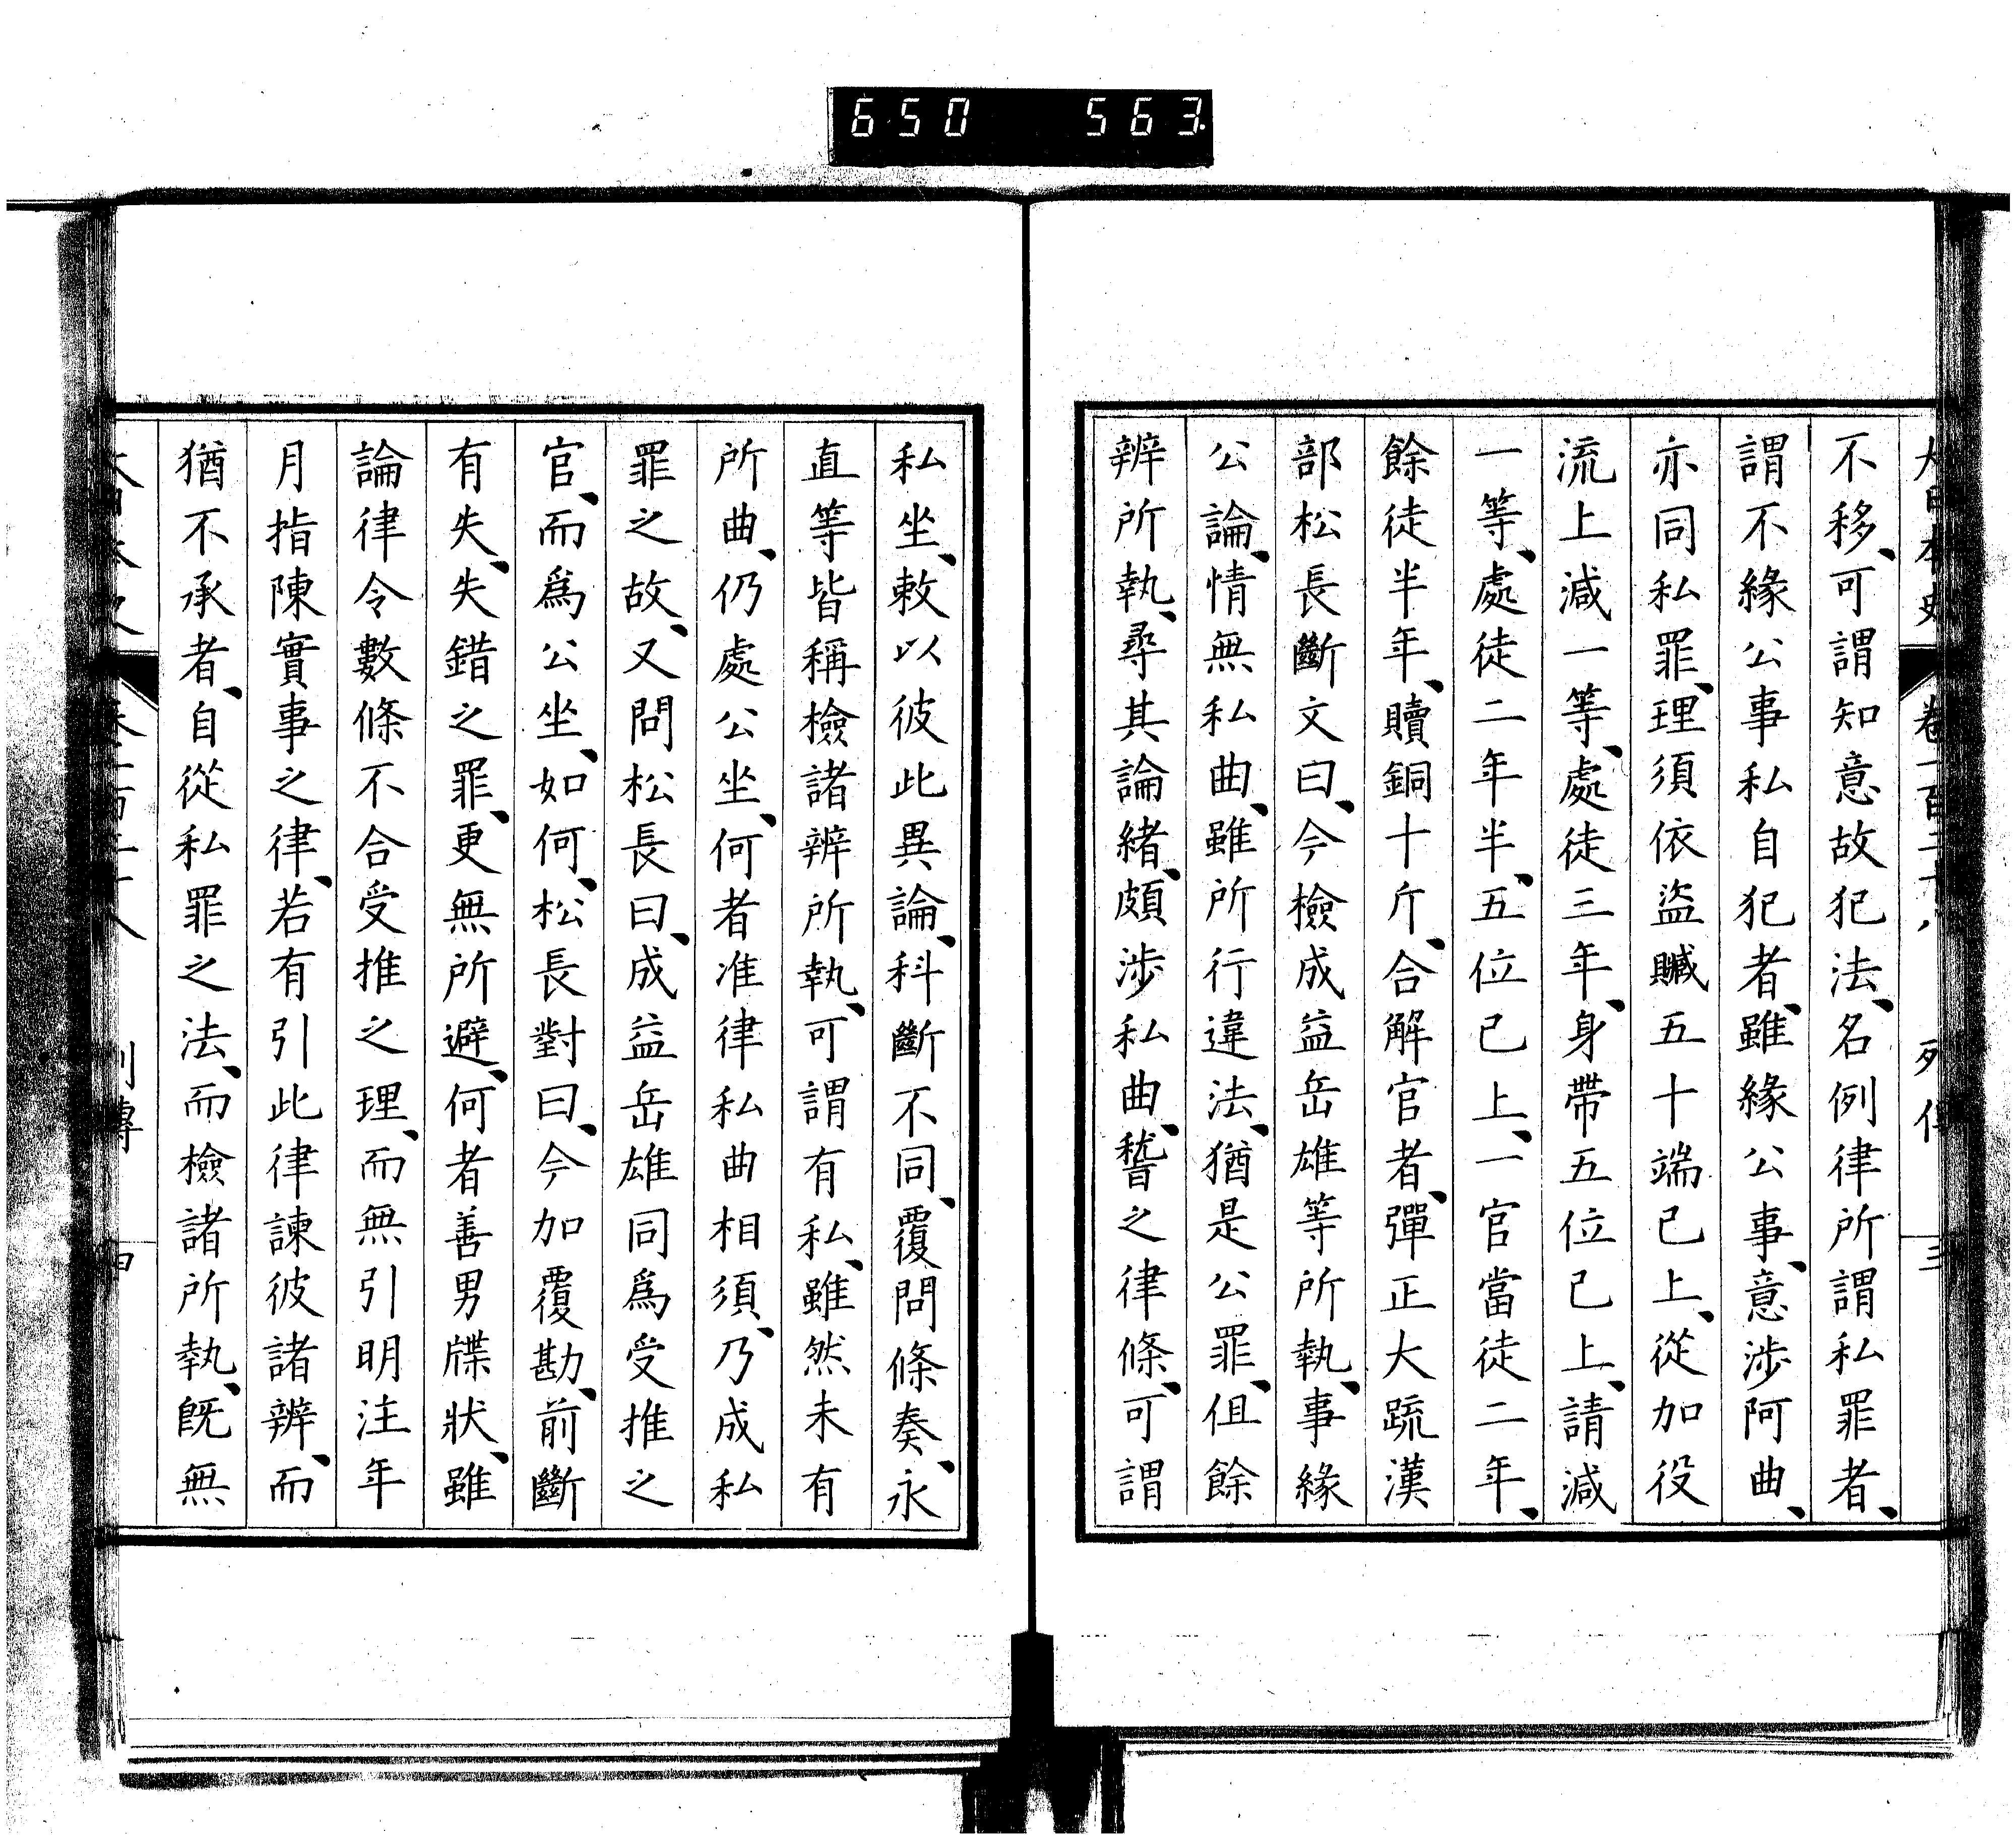 650 563.
大日本史 卷一百二十八 列傳 三
不移、可謂知意故犯法、名例律所謂私罪者、
謂不緣公事私自犯者、雖緣公事、意涉阿曲、
亦同私罪、理須依盜贓五十端已上、從加役
流上減一等、處徒三年、身帶五位已上、請減
一等、處徒二年半、五位已上、一官當徒二年、
餘徒半年、贖銅十斤、合解官者、彈正大疏漢
部松長斷文曰、今檢成益岳雄等所執、事緣
公論、情無私曲、雖所行違法、猶是公罪、伹餘
辨所執、尋其論緒、頗涉私曲、稽之律條、可謂
私坐、敕以彼此異論、科斷不同、覆問條奏、永
直等皆稱檢諸辨所執、可謂有私、雖然未有
所曲、仍處公坐、何者准律私曲相須、乃成私
罪之故、又問松長曰、成益岳雄同爲受推之
官、而爲公坐、如何、松長對曰、今加覆勘、前斷
有失、失錯之罪、更無所避、何者善男牒狀、雖
論律令數條不合受推之理、而無引明注年
月指陳實事之律、若有引此律諫彼諸辨、而
猶不承者、自從私罪之法、而檢諸所執、旣無
大日本史 卷一百二十八 列傳 四